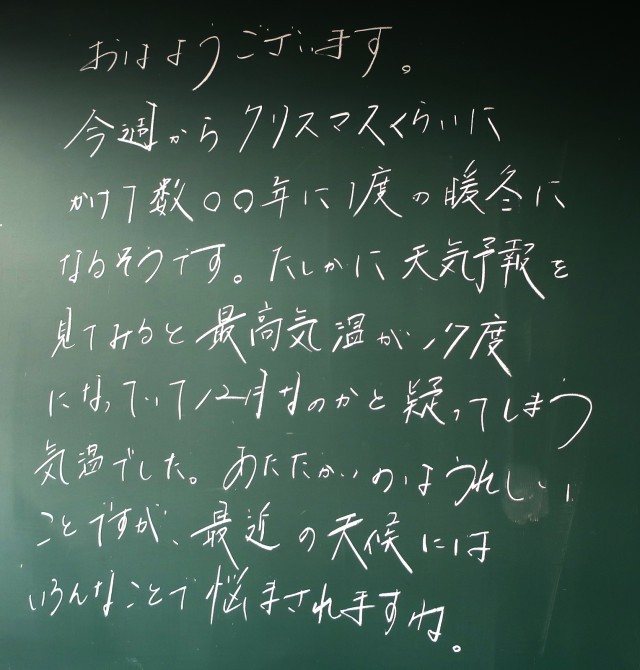 おはようございます。
今週からクリスマスくらいに
かけて数〇〇年に1度の暖冬に
なるそうです。たしかに天気予報を
見てみると最高気温が17度
になっていて12月なのかと疑ってしまう
気温でした。あたたかいのはうれしい
ことですが、最近の天候には
いろんなことで悩まされますね。